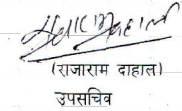 (राजाराम दाहाल)
उपसचिव